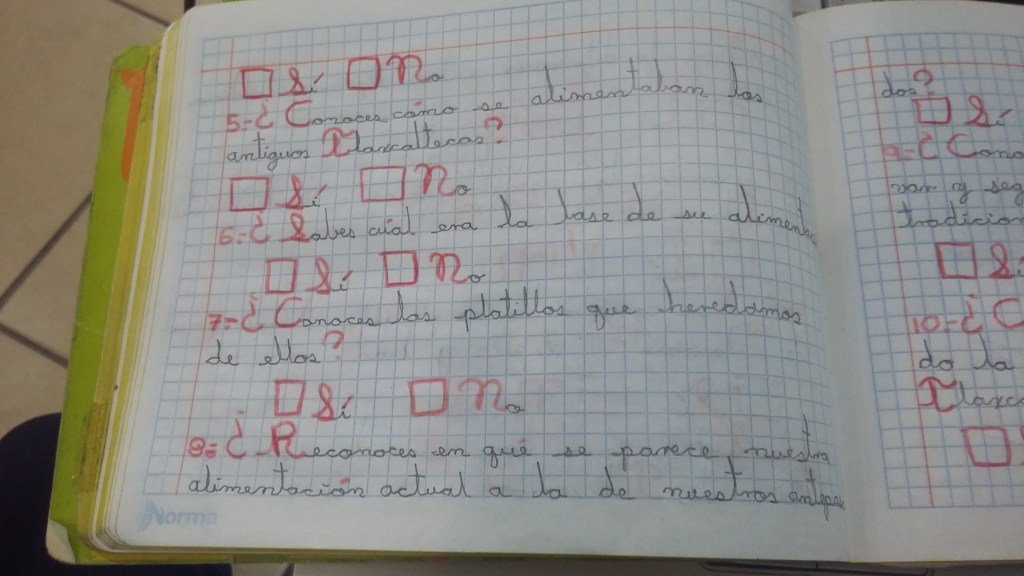 □ Sí □ No
5.-¿ Conoces cómo se alimentaban los
antiguos Tlaxcaltecas?
□ Sí □ No
6.-¿ Sabes cuál era la base de su alimenta
□ Sí □ No
7.-¿ Conoces los platillos que heredamos
de ellos?
□ Sí □ No
8.-¿ Reconoces en qué se parece nuestra
alimentación actual a la de nuestros antepa
Norma
dos?
□ Sí
9.-¿ Cono
van y seg
tradicion
□ Sí
10.-¿ C
do la
Tlaxca
□